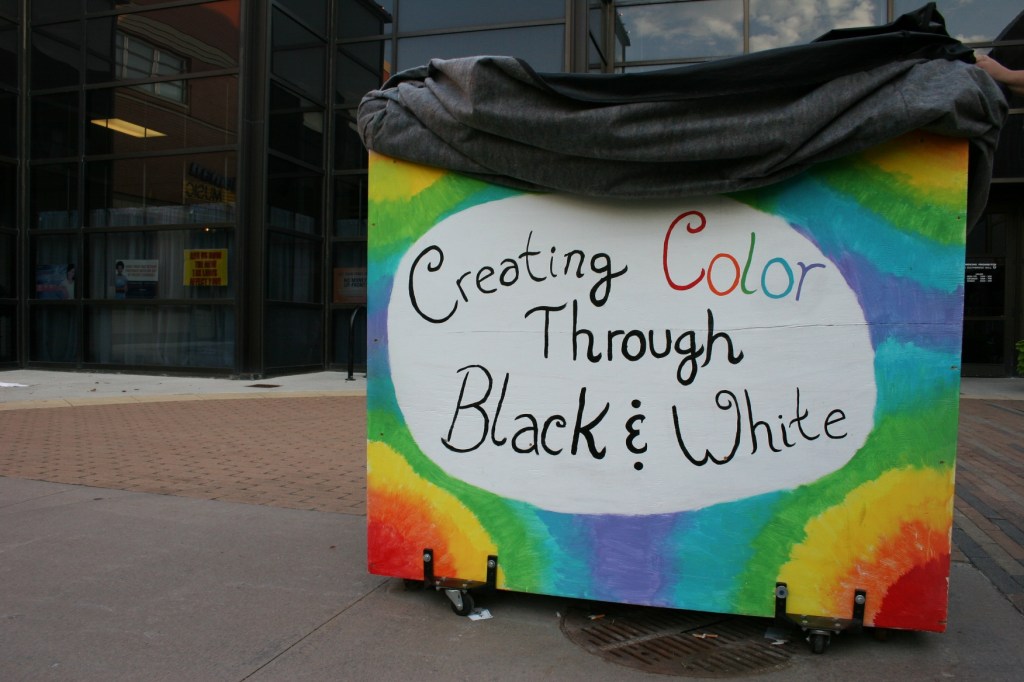 Creating Color
Through
Black & White